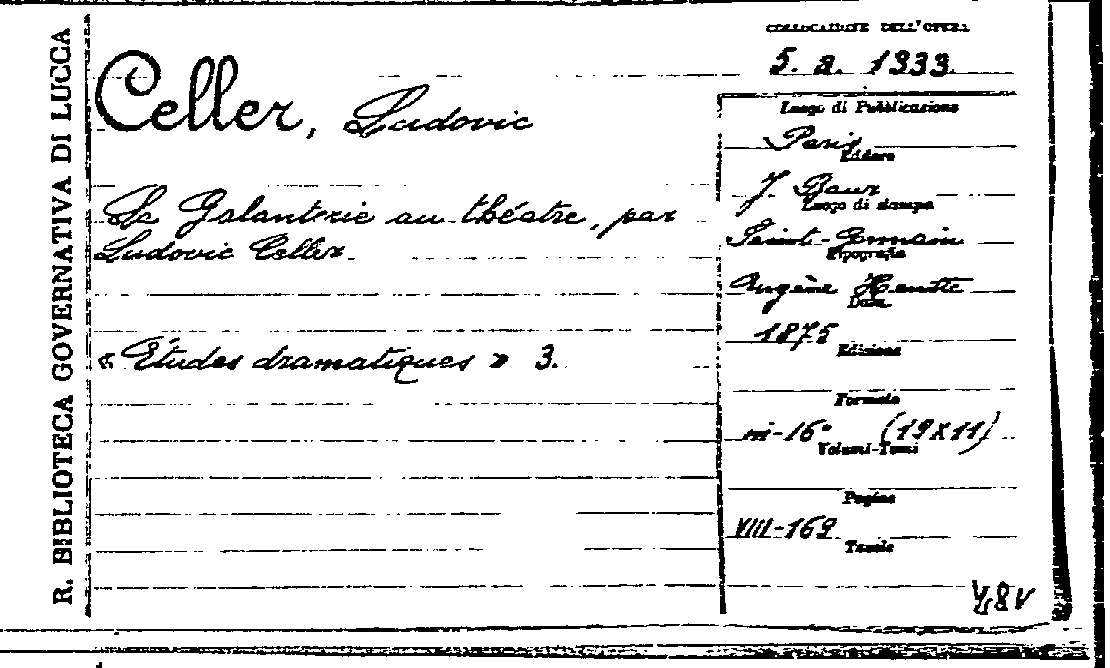 R. BIBLIOTECA GOVERNATIVA DI LUCCA
COLLOCAZIONE DELL'OPERA
5. a. 1333.
Celler, Ludovic
La Galanterie au théatre, par
Ludovic Celler.
« Études dramatiques » 3.
Luogo di Pubblicazione
Paris
Editore
J. Baur
Luogo di stampa
Saint-Germain
Tipografia
Eugène Heutte
Data
1875
Edizione
Formato
in-16° (19x11)
Volumi-Tomi
Pagine
VIII-169
Tavole